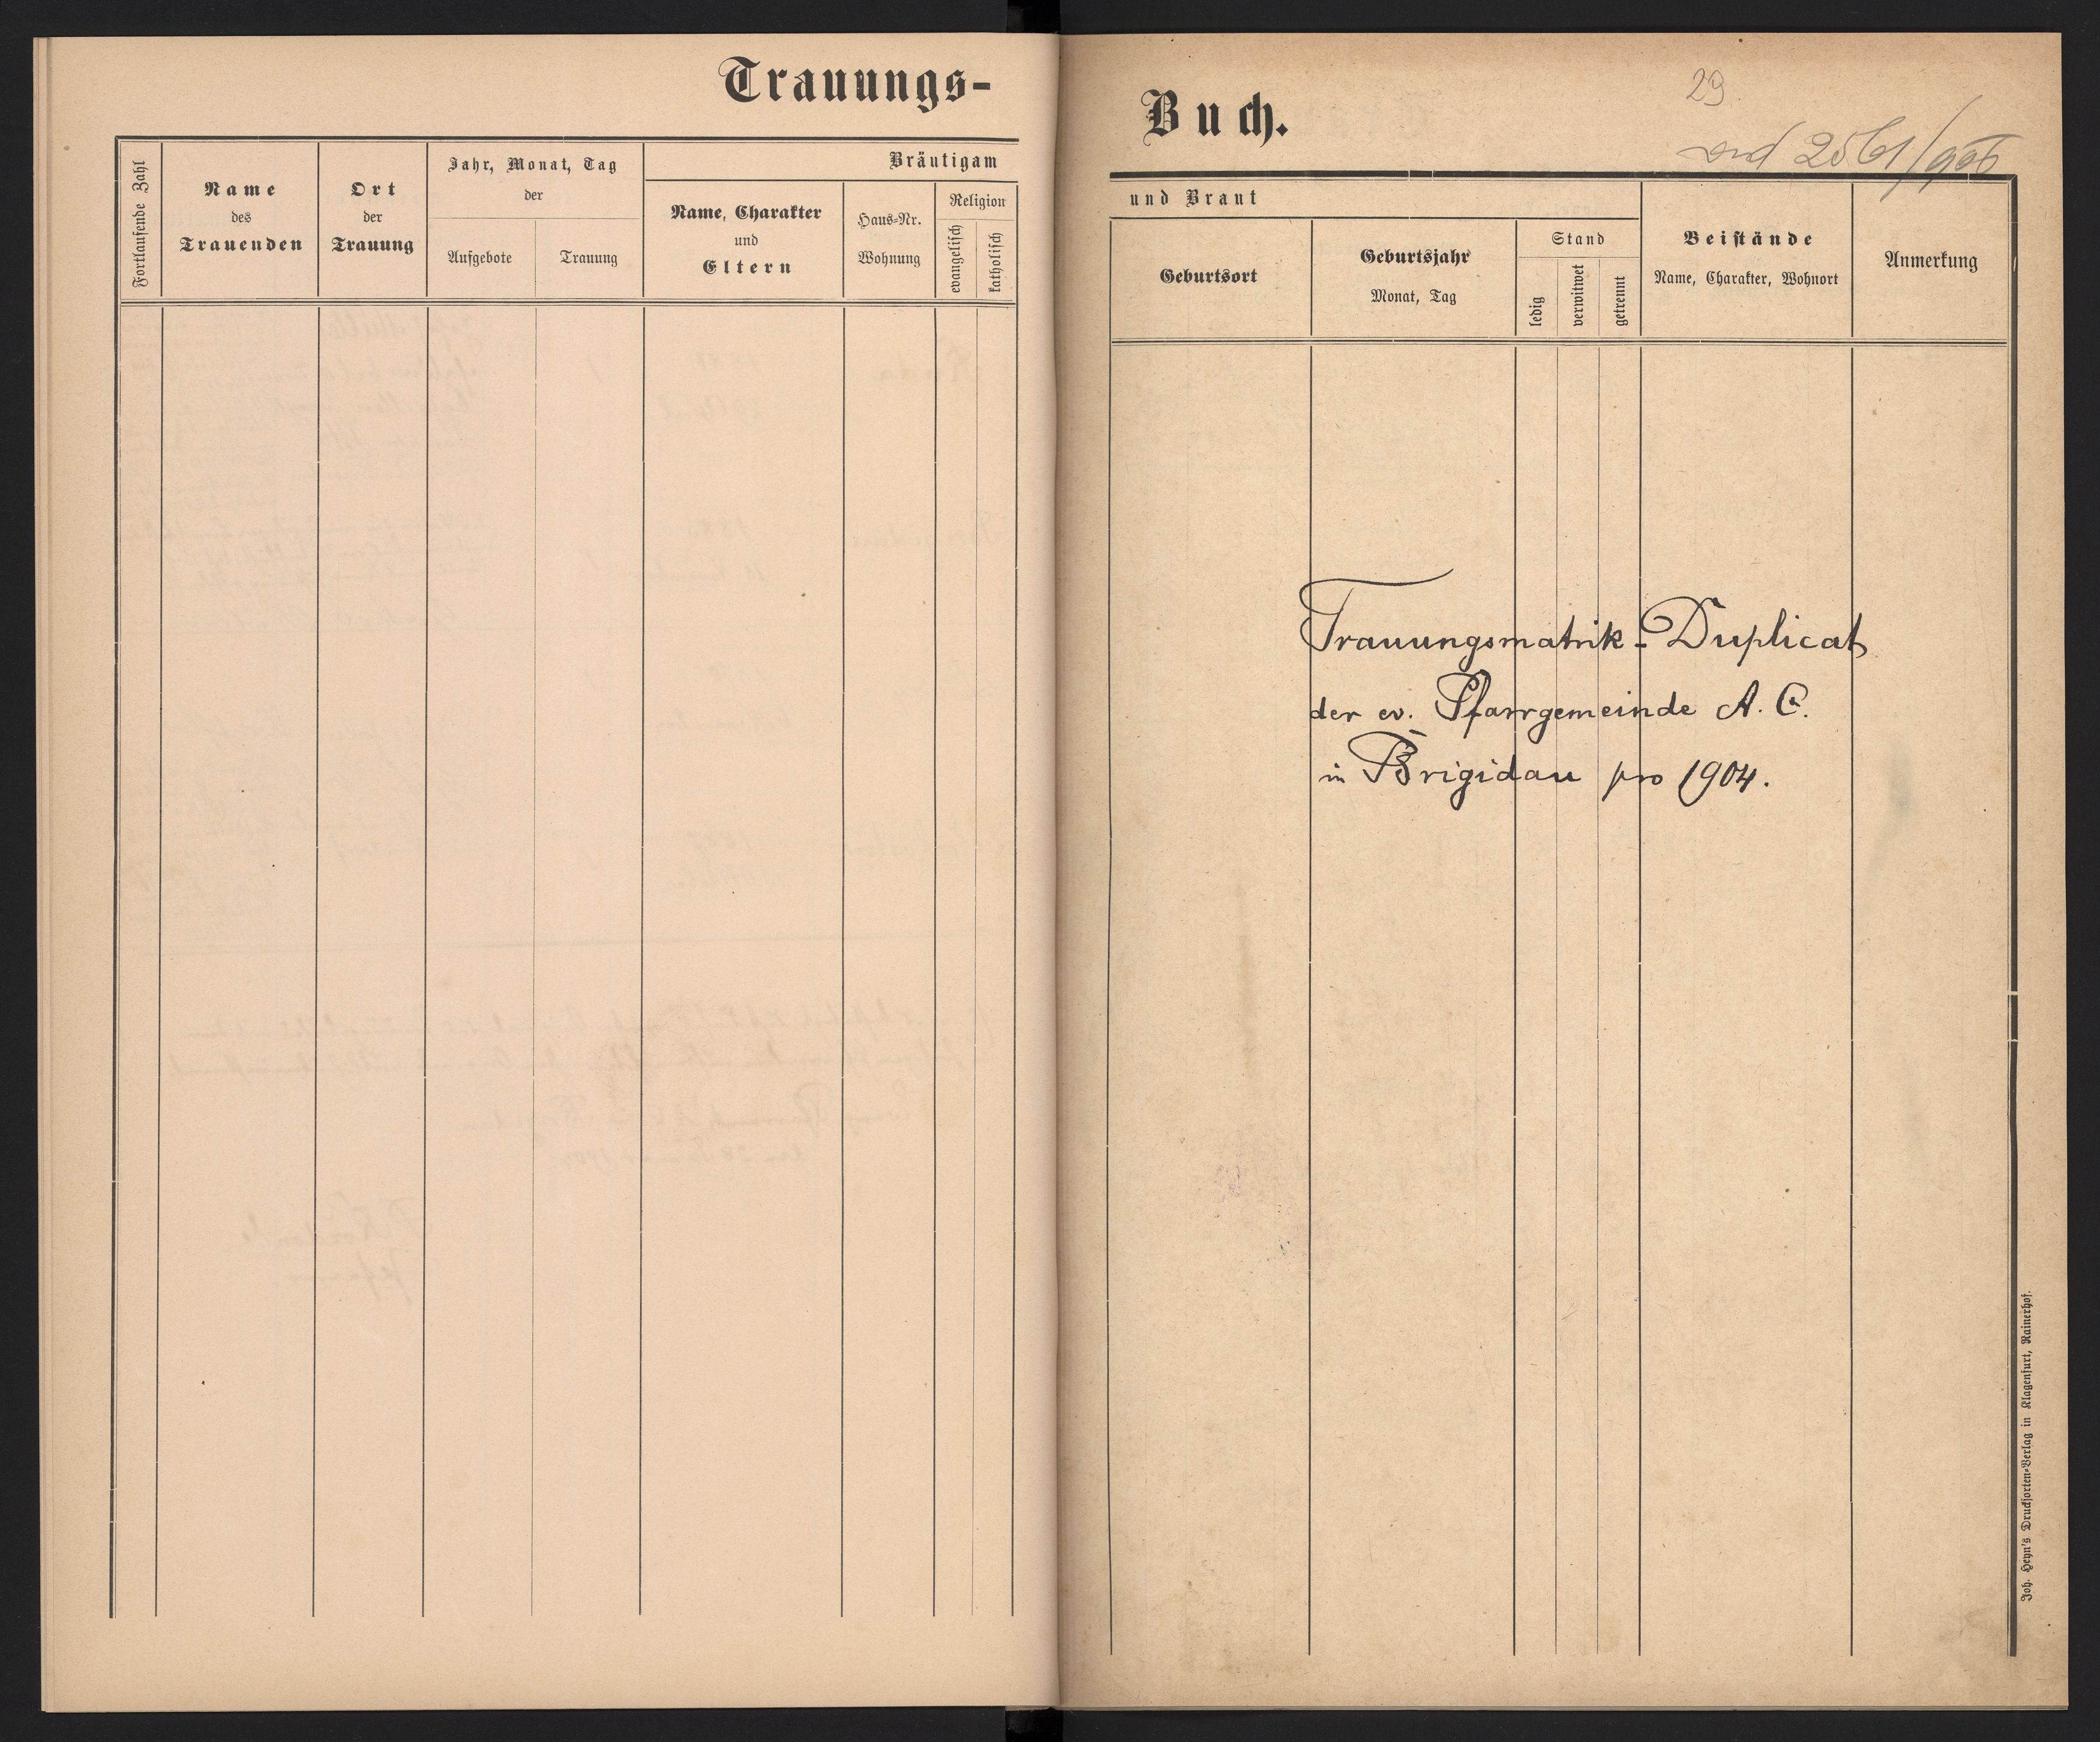 Trauungs-
Fortlaufende Zahl
Name
des
Trauenden
Ort
der
Trauung
Jahr, Monat, Tag
der
Aufgebote
Trauung
Bräutigam
Name, Charakter
und
Eltern
Haus-Nr.
Wohnung
Religion
evangelisch
katholisch
Buch.
29
und Braut
Geburtsort
Geburtsjahr
Monat, Tag
Stand
ledig
verwitwet
getrennt
Beistände
Name, Charakter, Wohnort
Anmerkung
Trauungsmatrik-Duplicat
der ev. Pfarrgemeinde A. C.
in Brigidau pro 1904.
Joh. Heyn's Drucksorten-Verlag in Klagenfurt, Rainerhof.